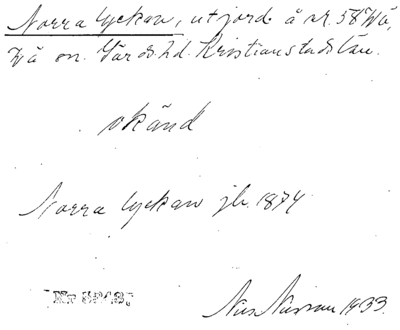 Norra lyckan, utjord å nr. 58 Vä,
Vä sn. Gärds hd. Kristianstads län.
okänd
Norra lyckan jb. 1874
Nils Nilsson 1933.